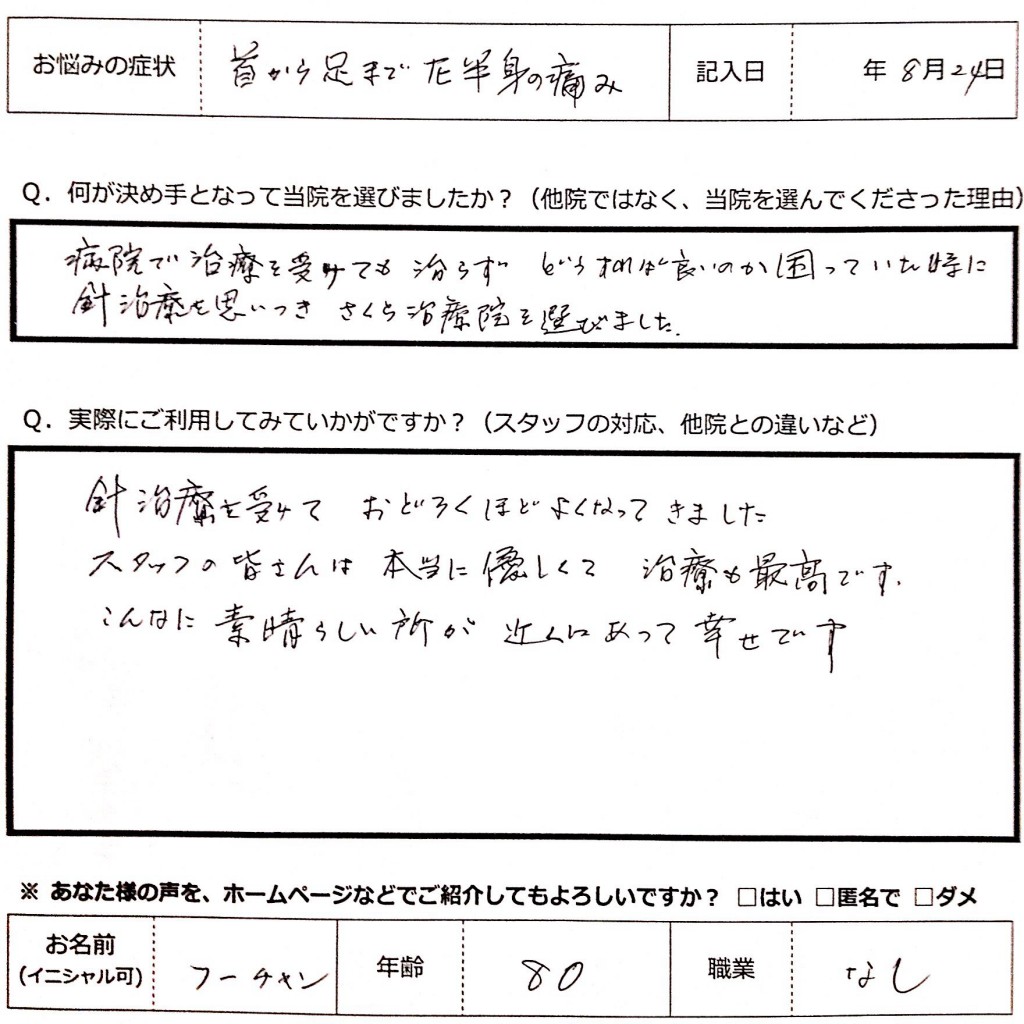 お悩みの症状 首から足まで左半身の痛み 記入日 年 8月24日
Q．何が決め手となって当院を選びましたか？（他院ではなく、当院を選んでくださった理由）
病院で治療を受けても治らず どうすれば良いのか困っていた時に
針治療を思いつき さくら治療院を選びました.
Q．実際にご利用してみていかがですか？（スタッフの対応、他院との違いなど）
針治療を受けて おどろくほどよくなってきました
スタッフの皆さんは 本当に優しくて 治療も最高です.
こんなに 素晴らしい所が 近くにあって幸せです
※ あなた様の声を、ホームページなどでご紹介してもよろしいですか？ □はい □匿名で □ダメ
お名前
（イニシャル可） フーチャン 年齢 80 職業 なし